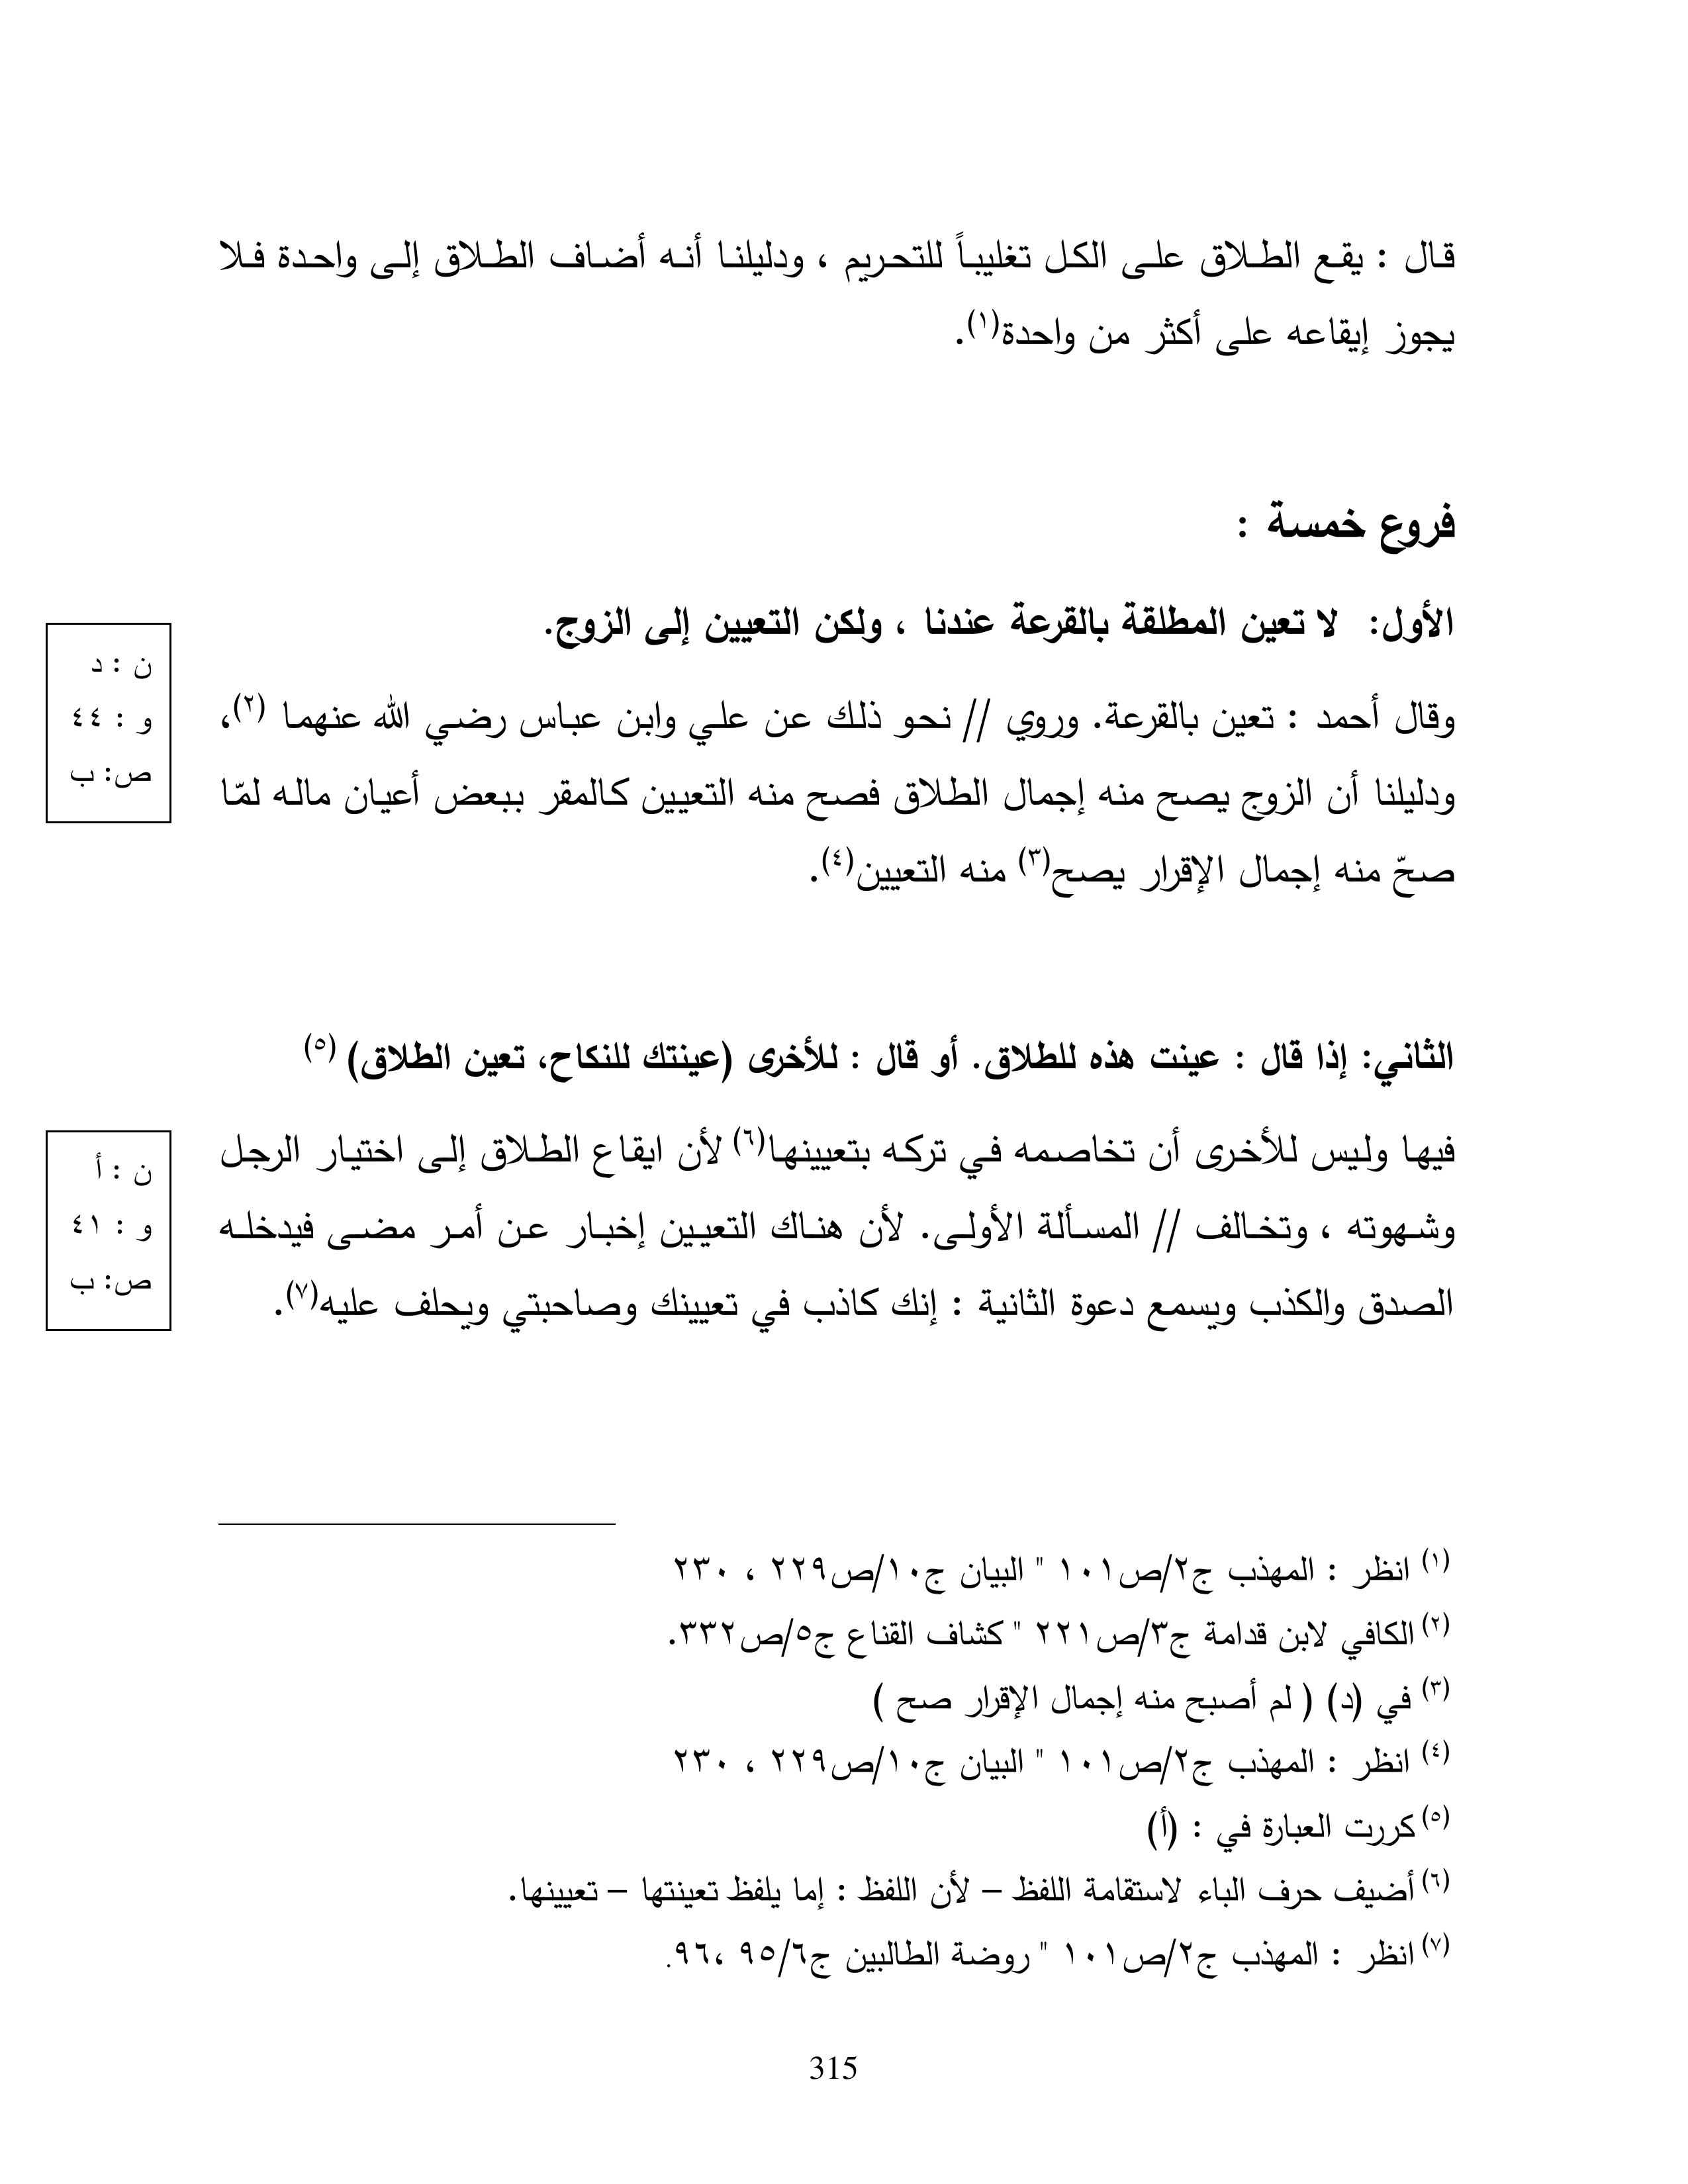 قال : يقع الطلاق على الكل تغليباً للتحريم ، ودليلنا أنه أضاف الطلاق إلى واحدة فلا
يجوز إيقاعه على أكثر من واحدة(١).
فروع خمسة :
الأول: لا تعين المطلقة بالقرعة عندنا ، ولكن التعيين إلى الزوج.
وقال أحمد : تعين بالقرعة. وروي // نحو ذلك عن علي وابن عباس رضي الله عنهما (٢)،
ودليلنا أن الزوج يصح منه إجمال الطلاق فصح منه التعيين كالمقر ببعض أعيان ماله لمّا
صحّ منه إجمال الإقرار يصح(٣) منه التعيين(٤).
ن : د
و : ٤٤
ص: ب
الثاني: إذا قال : عينت هذه للطلاق. أو قال : للأخرى (عينتك للنكاح، تعين الطلاق) (٥)
فيها وليس للأخرى أن تخاصمه في تركه بتعيينها(٦) لأن ايقاع الطلاق إلى اختيار الرجل
وشهوته ، وتخالف // المسألة الأولى. لأن هناك التعيين إخبار عن أمر مضى فيدخله
الصدق والكذب ويسمع دعوة الثانية : إنك كاذب في تعيينك وصاحبتي ويحلف عليه(٧).
ن : أ
و : ٤١
ص: ب
(١) انظر : المهذب ج٢/ص١٠١ " البيان ج١٠/ص٢٢٩ ، ٢٣٠
(٢) الكافي لابن قدامة ج٣/ص٢٢١ " كشاف القناع ج٥/ص٣٣٢.
(٣) في (د) ( لم أصبح منه إجمال الإقرار صح )
(٤) انظر : المهذب ج٢/ص١٠١ " البيان ج١٠/ص٢٢٩ ، ٢٣٠
(٥) كررت العبارة في : (أ)
(٦) أضيف حرف الباء لاستقامة اللفظ – لأن اللفظ : إما يلفظ تعينتها – تعيينها.
(٧) انظر : المهذب ج٢/ص١٠١ " روضة الطالبين ج٩٥/٦ ،٩٦.
315